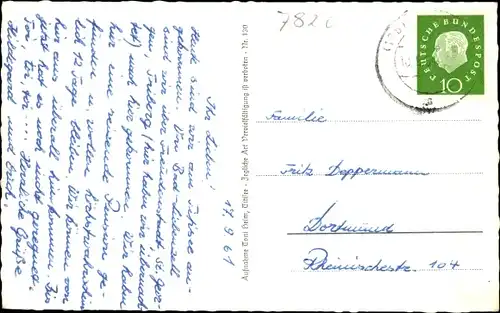 7820
DEUTSCHE BUNDESPOST
10
17.9.61
Ihr Lieben!
Heute sind wir am Titisee an-
gekommen. Von Bad-Liebenzell
sind wir über Freudenstadt, St. Geor-
gen, Triberg (hier haben wir übernach-
tet) nach hier gekommen. Wir haben
hier eine reizende Pension ge-
funden u. wollen höchstwahrschein-
lich 12 Tage bleiben. Wir können von
hier aus überall hinkommen. Bis
jetzt hat es noch nicht geregnet.
Toi, toi, toi.... Herzliche Grüße
Hildegard und Erich.
Aufnahme Toni Heim, Titisee - Jegliche Art Vervielfältigung ist verboten - Nr. 130
Familie
Fritz Doppermann
Dortmund
Rheinischestr. 104